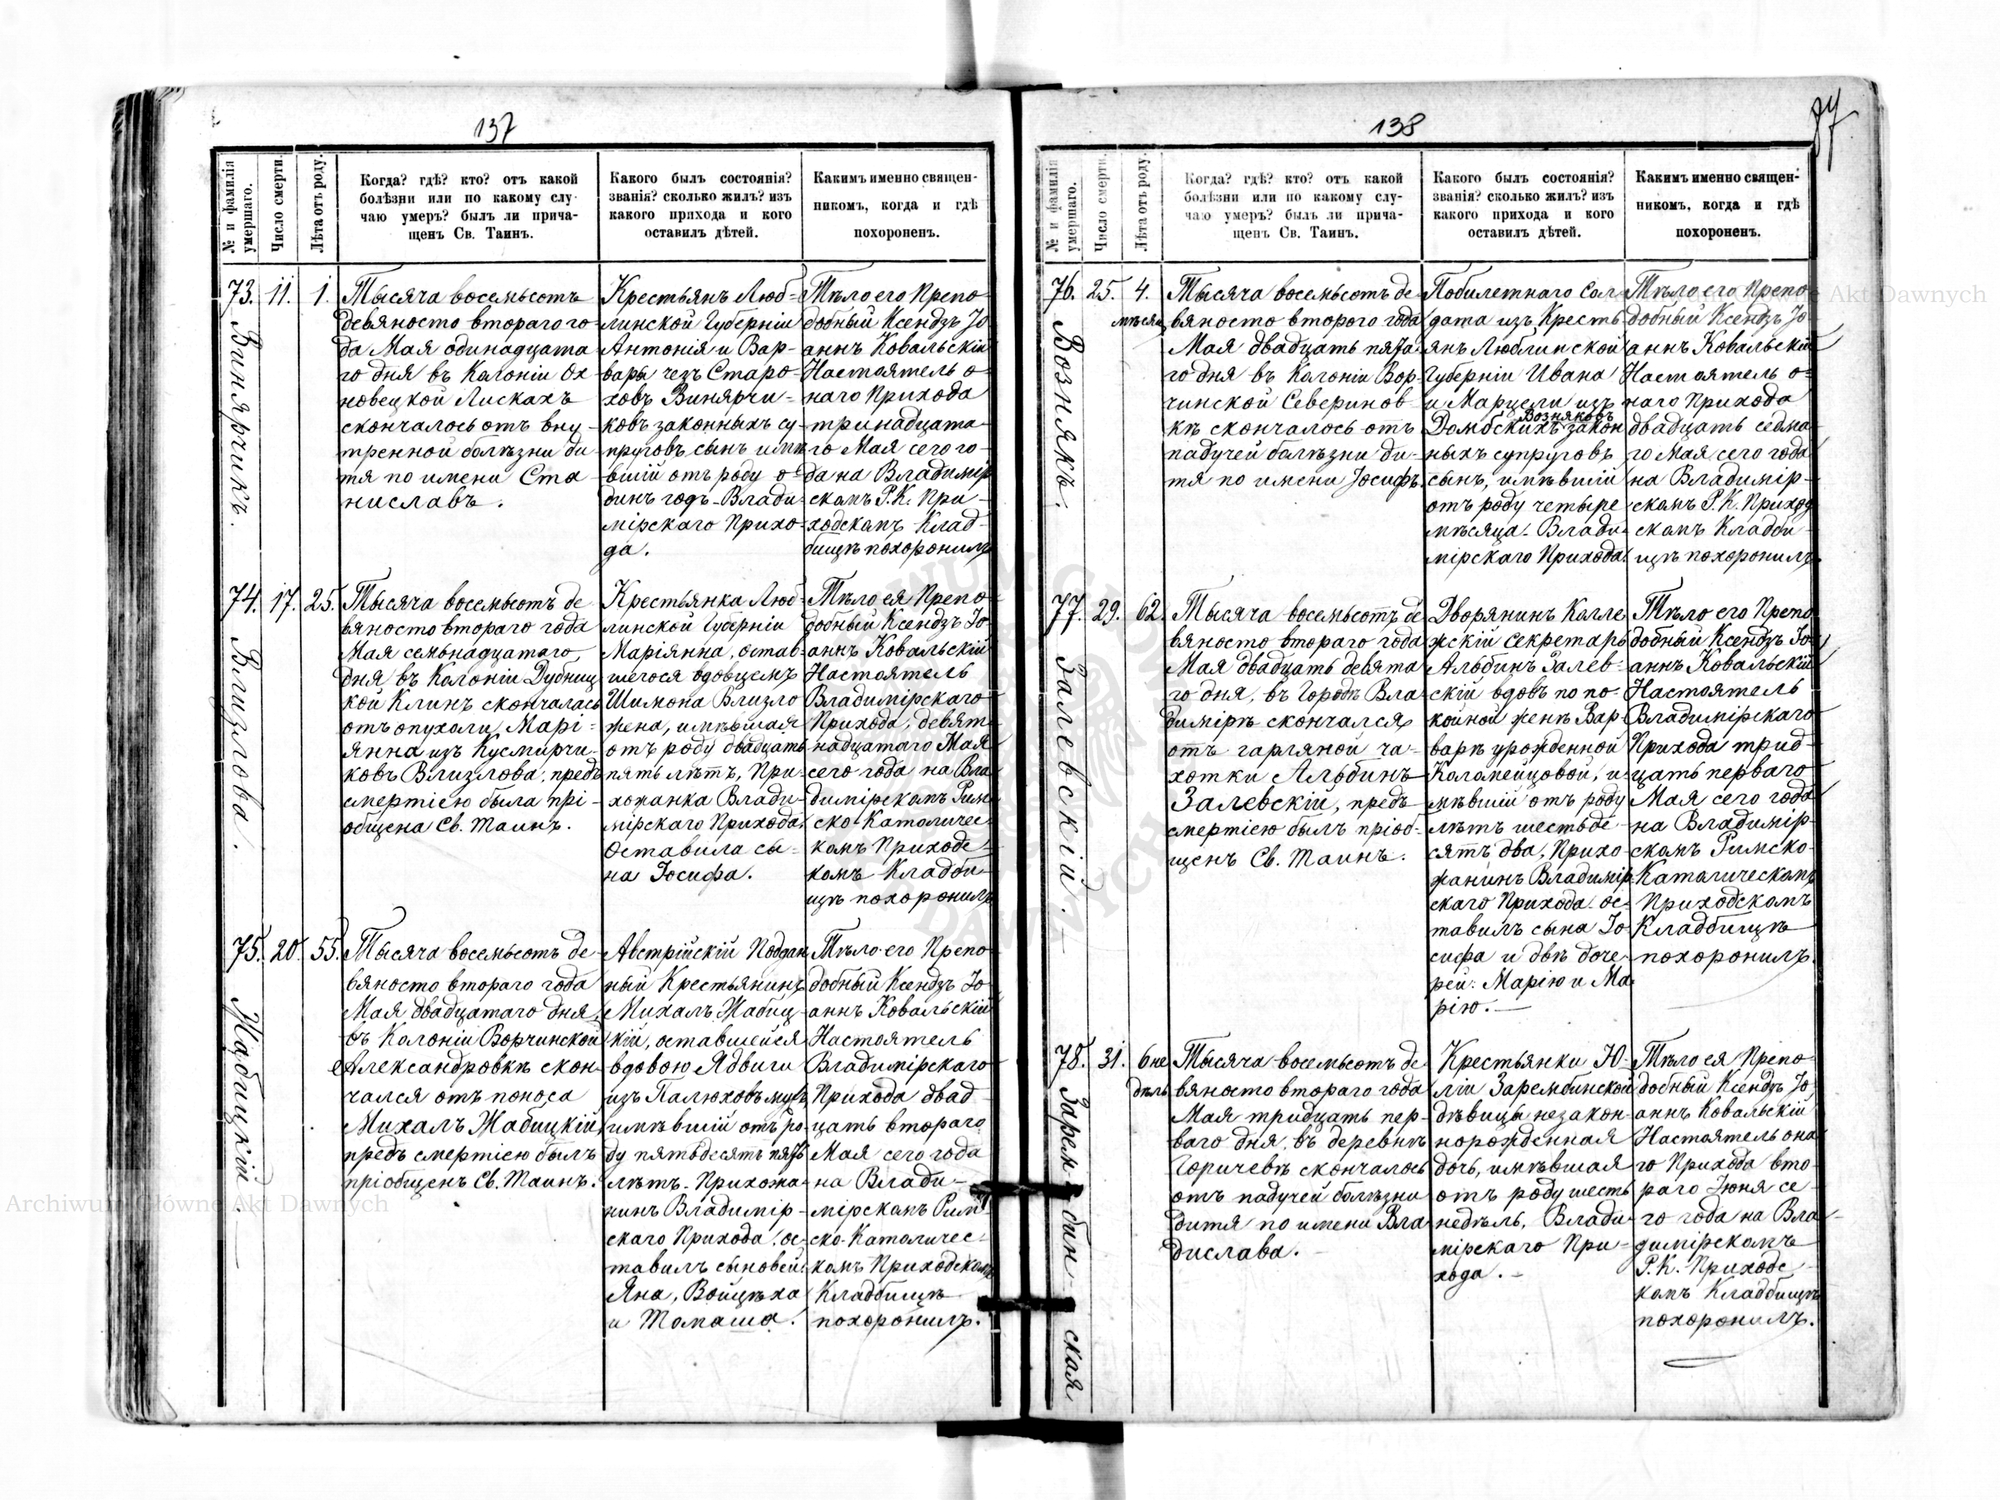 137
№ и фамилія умершаго.
Число смерти.
Лѣта отъ роду.
Когда? гдѣ? кто? отъ какой
болѣзни или по какому слу-
чаю умеръ? былъ ли прича-
щенъ Св. Таинъ.
Какого былъ состоянія?
званія? сколько жилъ? изъ
какого прихода и кого
оставилъ дѣтей.
Какимъ именно священ-
никомъ, когда и гдѣ
похороненъ.
73. Винярчикъ.
11.
1.
Тысяча восемьсотъ
девяносто втораго го
да Мая одинадцата
го дня въ Колоніи Ох
новецкой Лискахъ
скончалось отъ вну
тренной болѣзни ди
тя по имени Ста
ниславъ.
Крестьянъ Люб-
линской Губерніи
Антонія и Вар-
вары чезъ Старо-
ховъ Винярчи-
ковъ законныхъ су-
пруговъ сынъ имѣ
вшій отъ роду о-
динъ годъ - Влади
мірскаго Прихо-
да.
Тѣло его Препо-
добный Ксендзъ Іо
аннъ Ковальскій
Настоятель о-
наго Прихода
тринадцата-
го Мая сего го-
да на Владимір
скомъ Р.К. При-
ходскомъ Клад-
бищѣ похоронилъ
74. Влизлова.
17.
25.
Тысяча восемьсотъ де
вяносто втораго года
Мая семьнадцатаго
дня въ Колоніи Дубниц
кой Клинъ скончалась
отъ опухоли Марі-
янна изъ Кусмирчи-
ковъ Влизлова, предъ
смертією была прі-
общена Св. Таинъ.
Крестьянка Люб-
линской Губерніи
Маріянна, остав-
шегося вдовцемъ
Шимона Влизло
жена, имѣвшая
отъ роду двадцать
пять лѣтъ, При-
хожанка Влади-
мірскаго Прихода.
Оставила сы-
на Іосифа.
Тѣло ея Препо-
добный Ксендзъ Іо
аннъ Ковальскій
Настоятель
Владимірскаго
Прихода, девят-
надцатаго Мая
сего года на Вла
димірскомъ Рим
ско-Католичес-
комъ Приходс-
комъ Кладби-
щѣ похоронилъ
75. Жабицкій.
20.
55.
Тысяча восемьсотъ де-
вяносто втораго года
Мая двадцатаго дня
въ Колоніи Ворчинской
Александровкѣ скон-
чался отъ поноса
Михалъ Жабицкій
предъ смертією былъ
пріобщенъ Св. Таинъ.
Австрійскій Поддан
ный Крестьянинъ
Михалъ Жабиц-
кій, оставшейся
вдовою Ядвиги
изъ Палюховъ мужъ
имѣвшій отъ ро-
ду пятьдесятъ пять
лѣтъ - Прихожа
нинъ Владимір-
скаго Прихода, ос-
тавилъ сыновей:
Яна, Войцѣха
и Томаша.
Тѣло его Препо
добный Ксендзъ Іо
аннъ Ковальскій
Настоятель
Владимірскаго
Прихода двад-
цать втораго
Мая сего года
на Влади-
мірскомъ Рим-
ско-Католичес-
комъ Приходскомъ
Кладбищѣ
похоронилъ.
138
77
№ и фамилія умершаго.
Число смерти.
Лѣта отъ роду.
Когда? гдѣ? кто? отъ какой
болѣзни или по какому слу-
чаю умеръ? былъ ли прича-
щенъ Св. Таинъ.
Какого былъ состоянія?
званія? сколько жилъ? изъ
какого прихода и кого
оставилъ дѣтей.
Какимъ именно священ-
никомъ, когда и гдѣ
похороненъ.
76. Вознякъ.
25.
4.
мѣсяц
Тысяча восемьсотъ де
вяносто второго года
Мая двадцать пята
го дня въ Колоніи Вор-
чинской Северинов-
кѣ скончалось отъ
падучей болѣзни ди-
тя по имени Іосифъ.
Побилетнаго Сол-
дата изъ Кресть
янъ Люблинской
Губерніи Ивана
и Марцели изъ
Возняковъ
Домбскихъ закон
ныхъ супруговъ
сынъ, имѣвшій
отъ роду четыре
мѣсяца. Влади-
мірскаго Прихода.
Тѣло его Препо-
добный Ксендзъ Іо-
аннъ Ковальскій
Настоятель о-
наго Прихода
двадцать седма-
го Мая сего года
на Владимір-
скомъ Р.К. Приход
скомъ Кладби-
щѣ похоронилъ
77. Залевскій.
29.
62.
Тысяча восемьсотъ де
вяносто втораго года
Мая двадцать девята
го дня, въ Городѣ Вла
димірѣ скончался
отъ гарляной ча-
хотки Альбинъ
Залевскій, предъ
смертією былъ пріоб-
щенъ Св. Таинъ.
Дворянинъ Колле
жскій секретарь
Альбинъ Залев-
скій вдовъ по по-
койной женѣ Вар-
варѣ урожденной
Коломейцовой, и-
мѣвшій отъ роду
лѣтъ шестьде-
сятъ два, Прихо-
жанинъ Владимір
скаго Прихода. ос-
тавилъ сына Іо
сифа и двѣ доче-
рей: Марію и Ма-
рію.
Тѣло его Препо
добный Ксендзъ Іо
аннъ Ковальскій
Настоятель
Владимірскаго
Прихода трид-
цать перваго
Мая сего года
на Владимір-
скомъ Римско-
Католическомъ
Приходскомъ
Кладбищѣ
похоронилъ.
78. Зарембинская
31.
6 не
дѣль
Тысяча восемьсотъ де
вяносто втораго года
Мая тридцать пер-
ваго дня, въ деревнѣ
Горичевѣ скончалось
отъ падучей болѣзни
дитя по имени Вла
дислава.
Крестьянки Ю-
ліи Зарембинской
дѣвицы незакон-
норожденная
дочь, имѣвшая
отъ роду шесть
недѣль, Влади-
мірскаго При-
хода.
Тѣло ея Препо-
добный Ксендзъ Іо
аннъ Ковальскій
Настоятель она
го Прихода вто-
раго Іюня се-
го года на Вла-
димірскомъ
Р.К. Приходс-
комъ Кладбищѣ
похоронилъ.
Archiwum Główne Akt Dawnych
Akt Dawnych